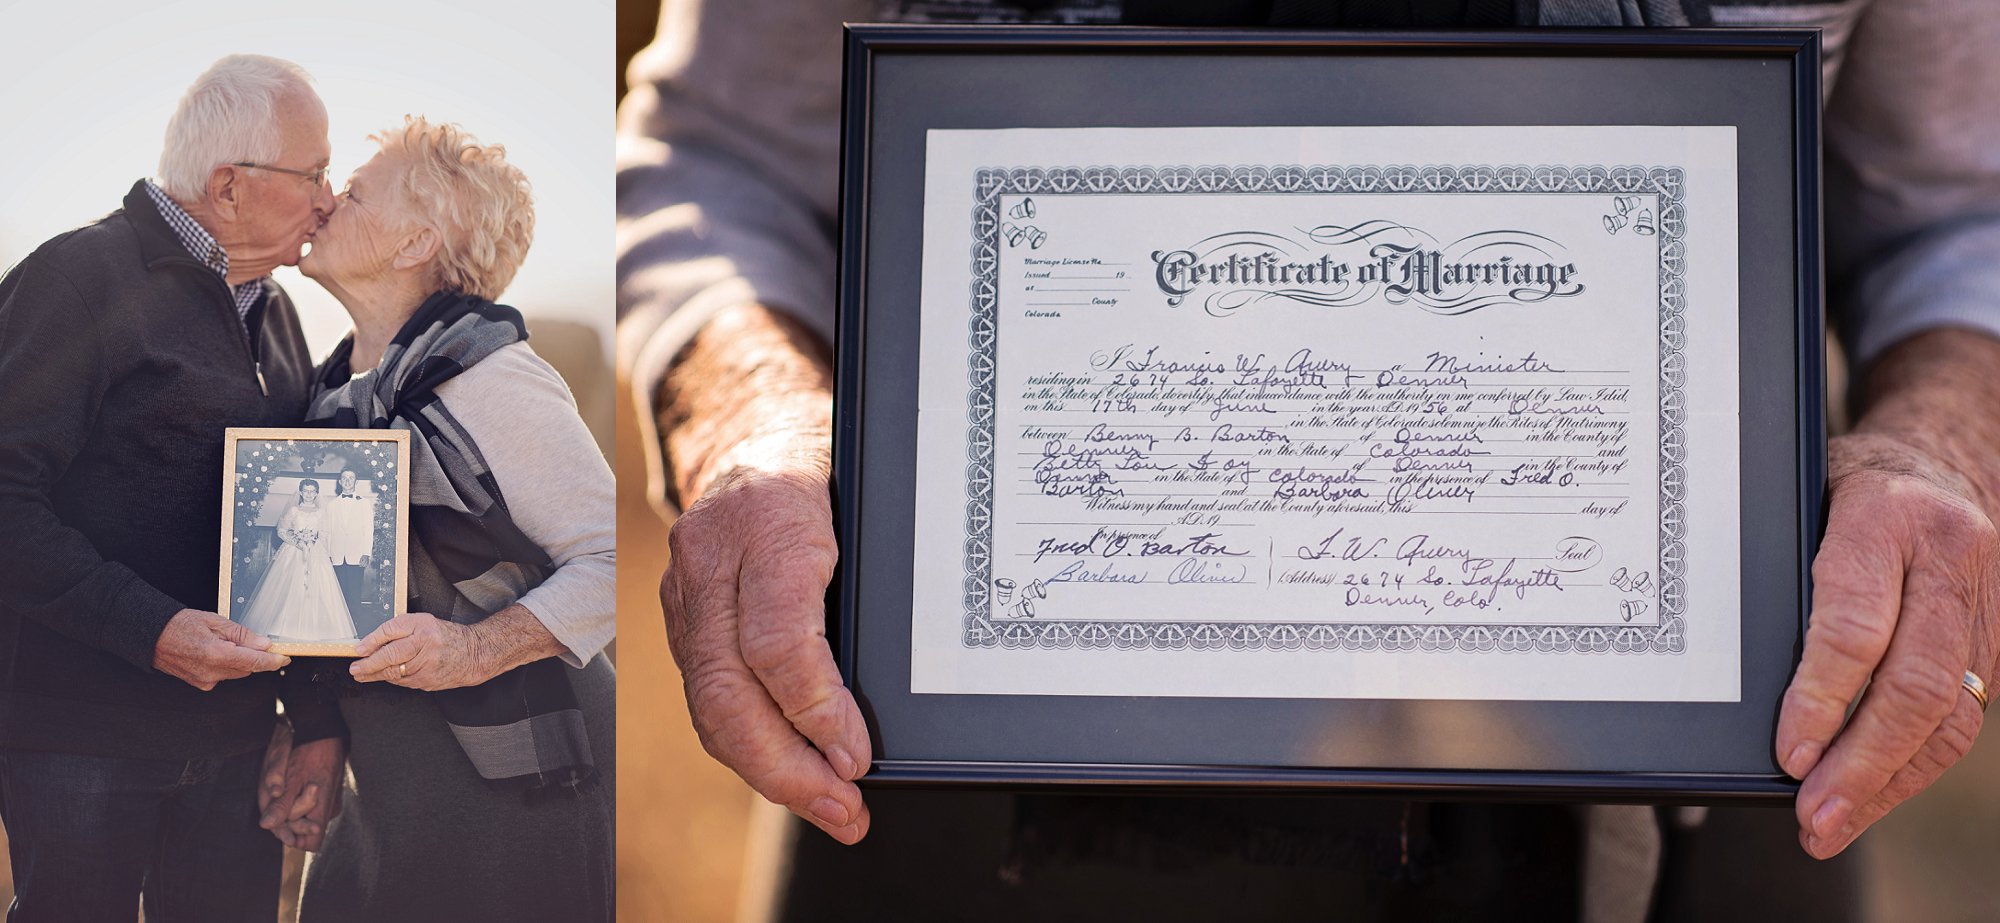 Marriage License No
Issued 19
at
County
Colorado
Certificate of Marriage
I Francis W. Avery a Minister
residing in 2674 So. Lafayette - Denver
in the State of Colorado, do certify, that in accordance with the authority on me conferred by Law I did,
on this 17th day of June in the year A.D. 1956 at Denver
, in the State of Colorado solemnize the Rites of Matrimony
between Benny B. Barton of Denver in the County of
Denver in the State of Colorado and
Betty Lou Foy of Denver in the County of
Denver in the State of Colorado in the presence of Fred O.
Barton and Barbara Oliver
Witness my hand and seal at the County aforesaid, this day of
A.D. 19
In presence of
Fred O. Barton F. W. Avery Seal
Barbara Oliver (Address) 2674 So. Lafayette
Denver, Colo.